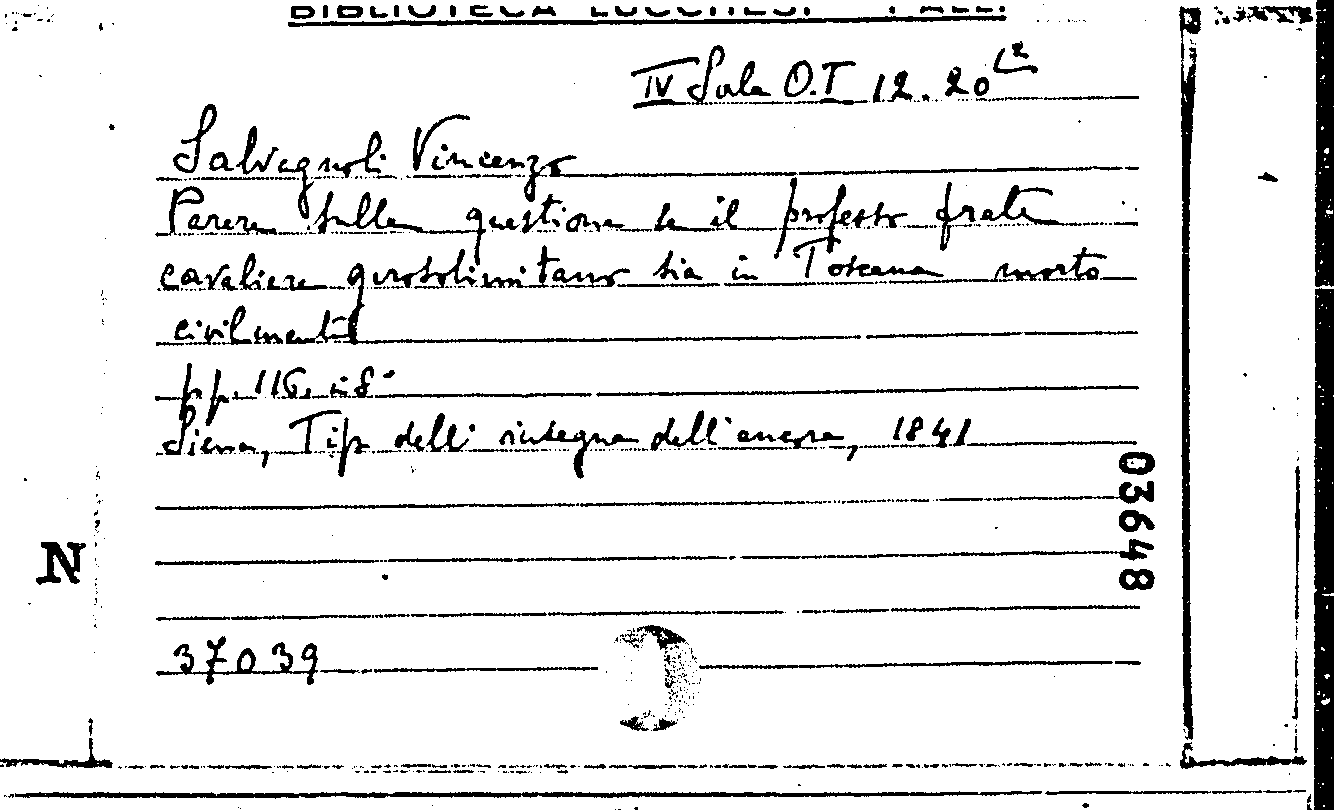 BIBLIOTECA LUCCHESI - PALLI
IV Sala O.T. 12. 20 (2
Salvagnoli Vincenzo
Parere sulla questione se il professo frate
cavaliere gerosolimitano sia in Toscana morto
civilmente
pp. 116, in 8°
Siena, Tip dell' insegna dell'ancora, 1841
03648
N
37039